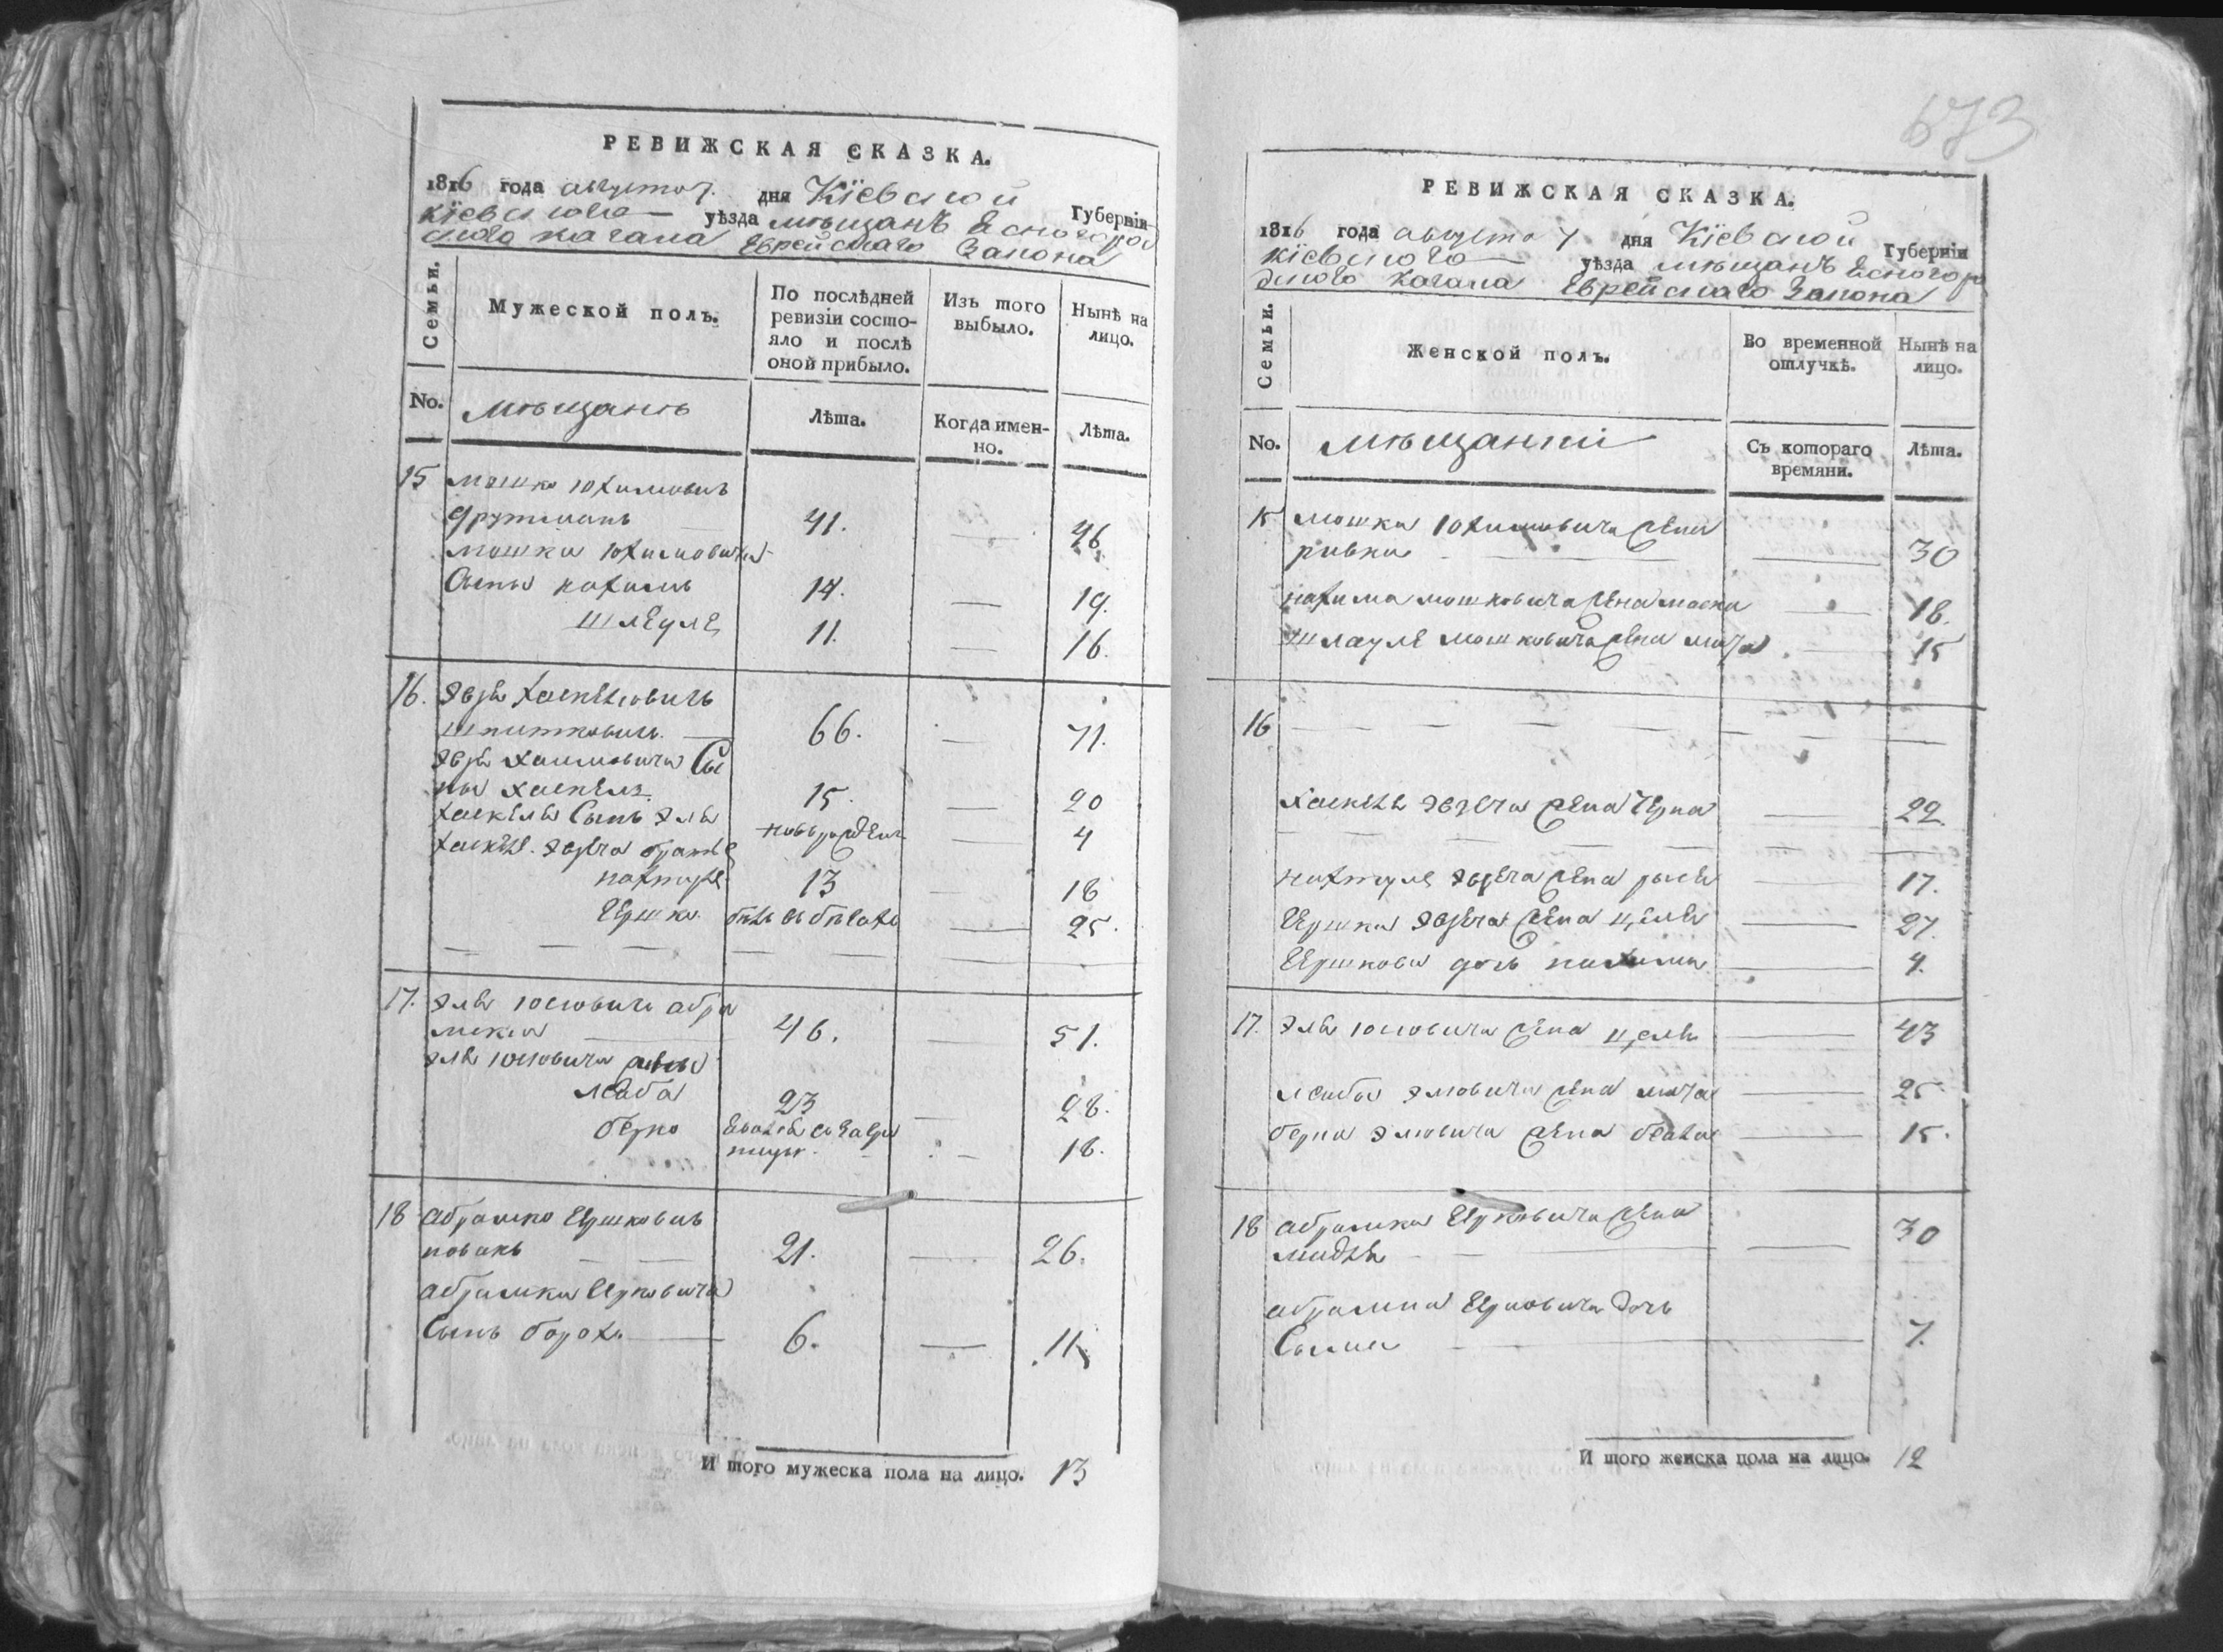 РЕВИЖСКАЯ СКАЗКА.
1816 года августа 7. дня Кіевской Губерніи
Кіевского уѣзда мѣщанъ Ясногород
ского кагала Еврейскаго Закона
Семьи.
Мужеской полъ.
По послѣдней ревизіи состо-
яло и послѣ оной прибыло.
Изъ того выбыло.
Нынѣ на лицо.
No.
мѣщанъ
Лѣта.
Когда имен-
но.
Лѣта.
15 мошко Юхимовичъ
41. 46
мошка Юхимовича
Сыны нахимъ 14. 19.
Шлеуле 11. 16.
16. Эвзе Хаскелевичъ
66. 71.
Эвзе Хаимовича Сы
ны Хаскель 15. 20
Хаскеля Сынъ Эле новорожденъ 4
Хаскеля Эвзеча братье
нахтуле 13 18
Гершко былъ въ бѣгахъ 25.
17. Эле Юсовичъ абра
46. 51.
Эле Юсовича сыны
Лейба 23 28.
берко 18.
18 абрамко Гершковичъ
новакъ 21. 26.
абрамка Герковича
Сынъ борохъ 6. 11
И того мужеска пола на лицо. 13
673
РЕВИЖСКАЯ СКАЗКА.
1816 года августа 7 дня Кіевской Губерніи
Кіевского уѣзда мѣщанъ Ясногоро
дского Кагала Еврейскаго Закона
Семьи.
Женской полъ.
Во временной отлучкѣ.
Нынѣ на лицо.
No.
мѣщанки
Съ котораго времяни.
Лѣта.
15 мошка Юхимовича жена
ривка 30
нахима мошковича жена 18.
шлауле мошковича жена 15
16
Хаскеле Эвзеча жена Черна 22.
нахтуле Эвзеча жена рысе 17.
Гершка Эвзеча жена цеме 27.
Гершкова дочь нахима 4.
17. Эле Юсовича жена 43
Лейбы Элювича жена 25
берка Элювича жена бейла 15.
18 абрамка Герковича жена
30
абрамка Герковича дочь
7.
И того женска пола на лицо. 12